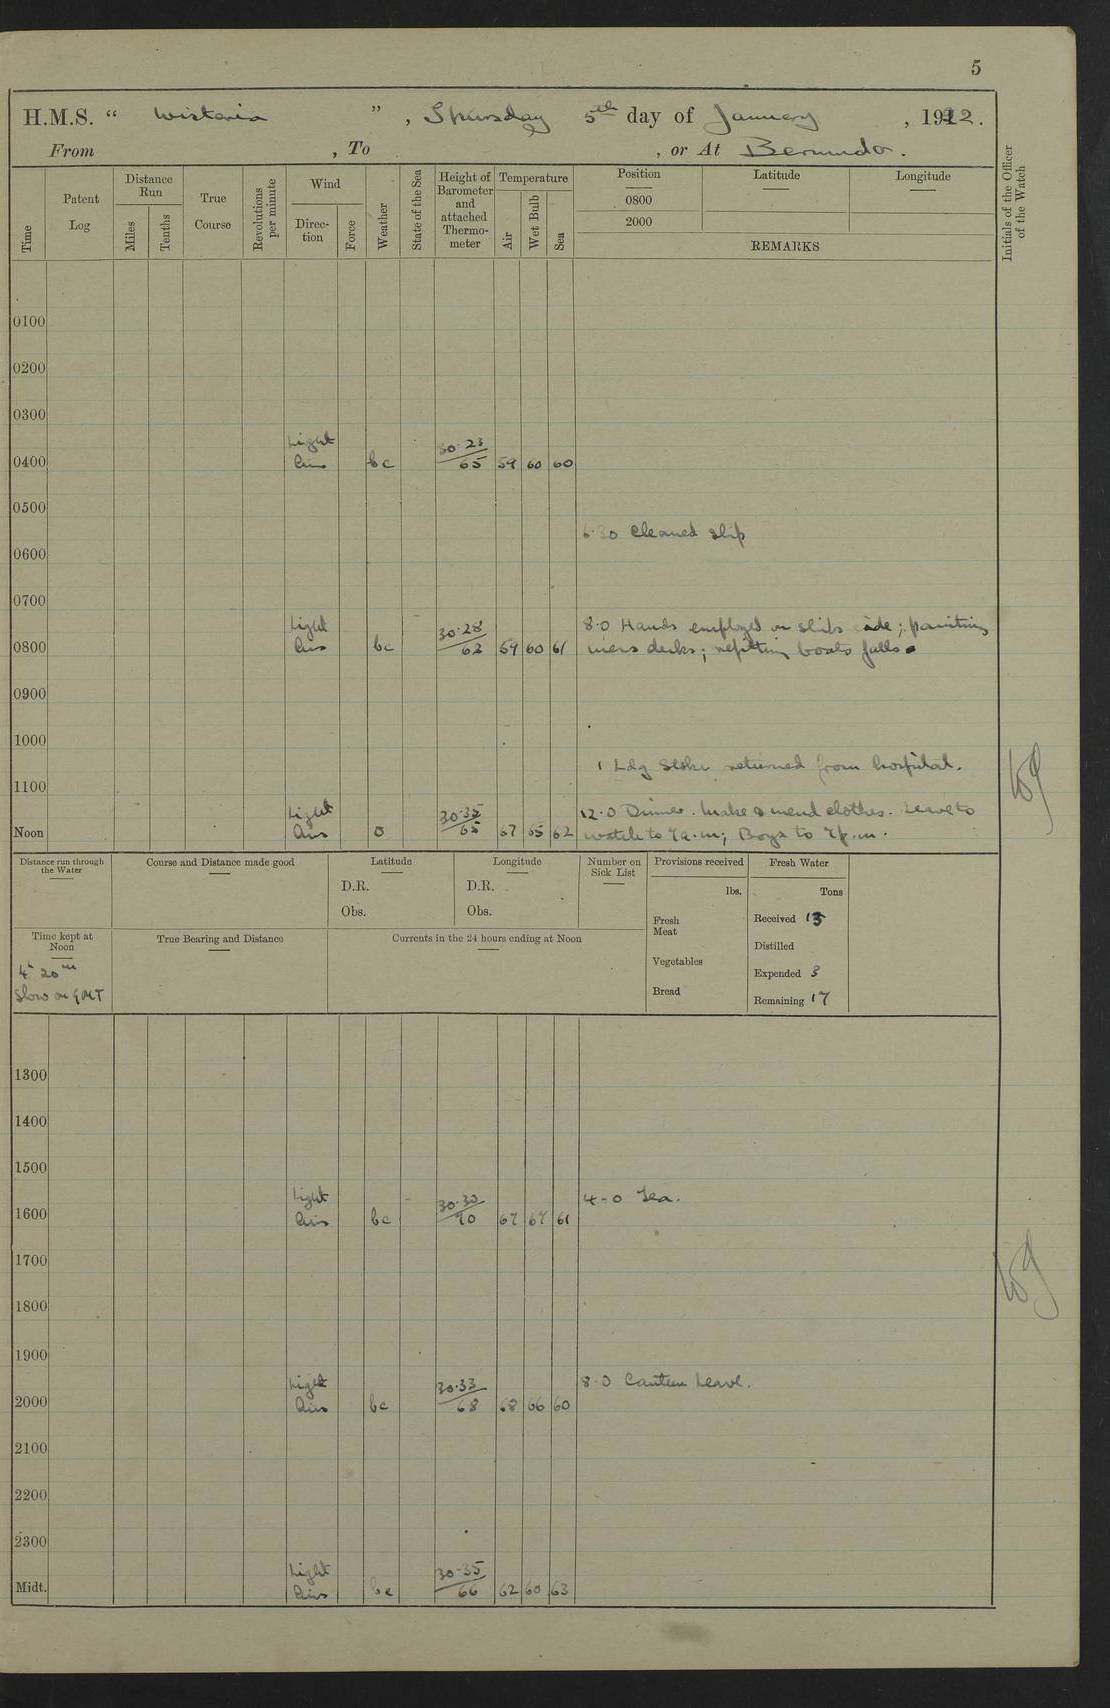 5
H.M.S. " Wistaria ", Thursday 5th day of January, 1922.
From , To , or At Bermuda.
Time
Patent Log
Distance Run
Miles
Tenths
True Course
Revolutions per minute
Wind
Direction
Force
Weather
State of the Sea
Height of Barometer and attached Thermometer
Temperature
Air
Wet Bulb
Sea
Position
0800
2000
Latitude
Longitude
REMARKS
Initials of the Officer of the Watch
0100
0200
0300
Light 30.23
0400 Airs bc 65 59 60 60
0500
6.30 Cleaned ship
0600
0700
Light 30.28 8.0 Hands employed on ships side; painting
0800 Airs bc 62 59 60 61 mess decks; refitting boats falls.
0900
1000
1 Ldg Stoker returned from hospital.
1100
Light 30.35 12.0 Dinner. Make & mend clothes. Leave to
Noon Airs o 65 67 65 62 watch to 7a.m; Boys to 7p.m.
Distance run through the Water
Course and Distance made good
Latitude
D.R.
Obs.
Longitude
D.R.
Obs.
Number on Sick List
Provisions received
lbs.
Fresh Meat
Vegetables
Bread
Fresh Water
Tons
Received 15
Distilled
Expended 3
Remaining 17
Time kept at Noon
4h 20m
Slow on GMT
True Bearing and Distance
Currents in the 24 hours ending at Noon
1300
1400
1500
Light 30.30 4-0 Tea.
1600 Airs bc 70 67 67 61
1700
1800
1900
Light 30.33 8.0 Canteen Leave.
2000 Airs bc 68 68 66 60
2100
2200
2300
Light 30.35
Midt. Airs bc 66 62 60 63